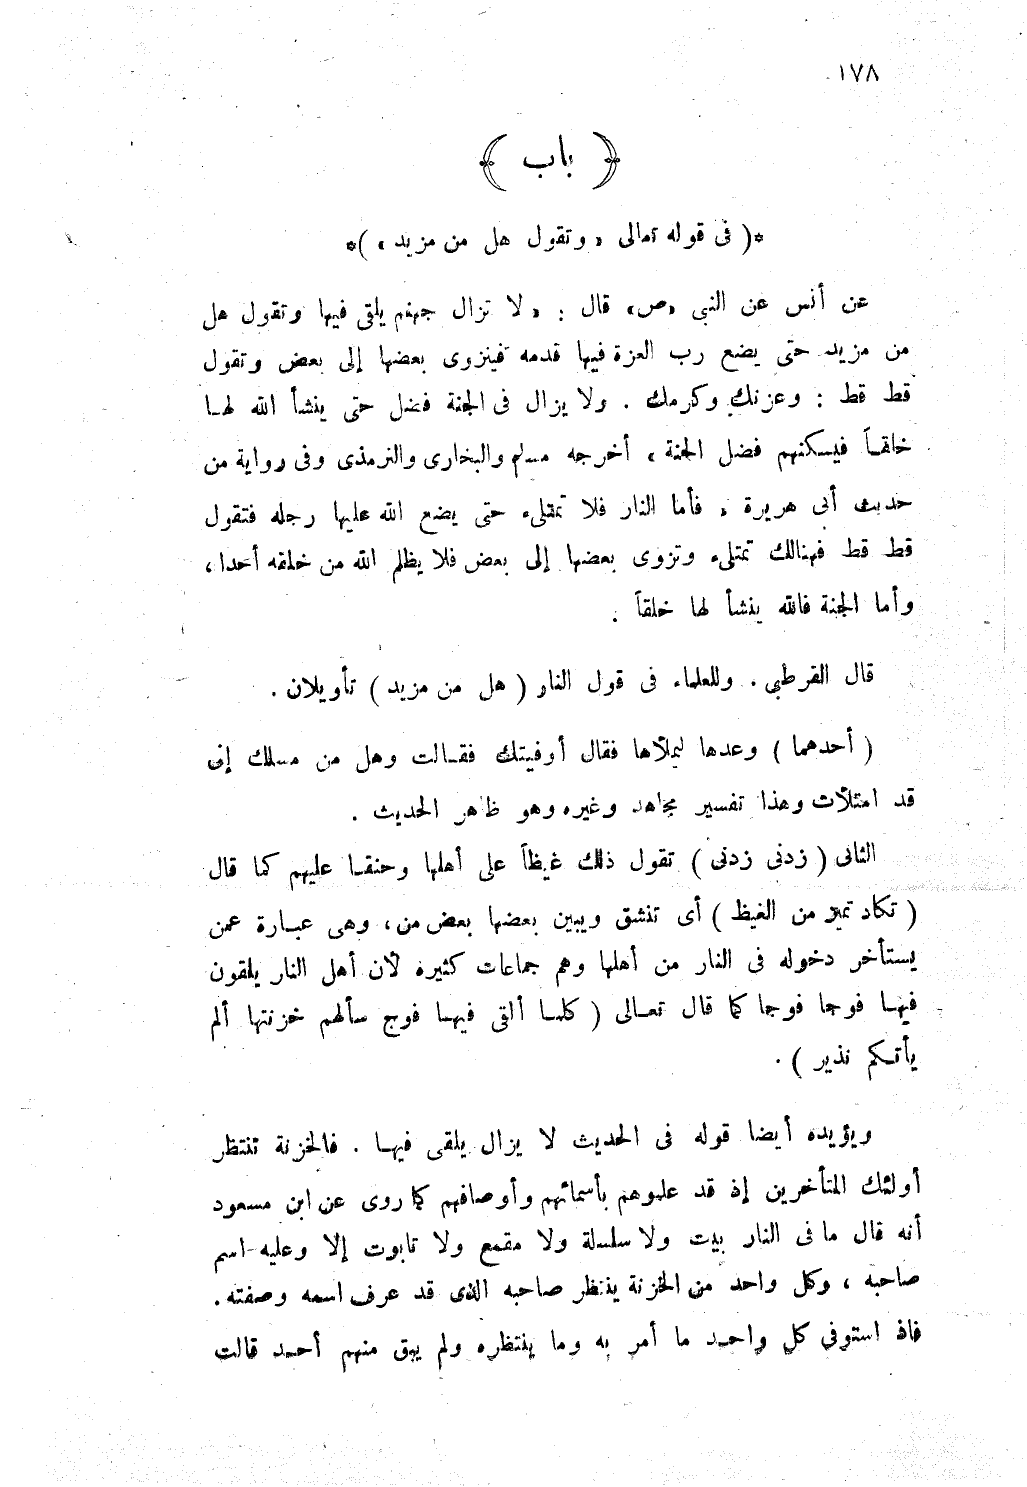 ١٧٨
﴿ باب ﴾
*( فى قوله تعالى « وتقول هل من مزيد » )*
عن أنس عن النبى «ص» قال : « لا تزال جهنم يلقى فيها وتقول هل
من مزيد حتى يضع رب العزة فيها قدمه فينزوى بعضها إلى بعض وتقول
قط قط : وعزتك وكرمك . ولا يزال فى الجنة فضل حتى ينشأ الله لهـا
خلقـاً فيسكنهم فضل الجنة » أخرجه مسلم والبخارى والترمذى وفى رواية من
حديث أبى هريرة « فأما النار فلا تمتلىء حتى يضع الله عليها رجله فتقول
قط قط فهنالك تمتلىء وتزوى بعضها إلى بعض فلا يظلم الله من خلقه أحدا ،
وأما الجنة فالله ينشأ لها خلقاً .
قال القرطبي . وللعلماء فى قول النار ( هل من مزيد ) تأويلان .
( أحدهما ) وعدها ليملأها فقال أوفيتك فقـالت وهل من مسلك إنى
قد امتلأت وهذا تفسير مجاهد وغيره وهو ظاهر الحديث .
الثانى ( زدنى زدنى ) تقول ذلك غيظاً على أهلها وحنقـا عليهم كما قال
( تكاد تميز من الغيظ ) أى تنشق ويبين بعضها بعض من ، وهى عبـارة عمن
يستأخر دخوله فى النار من أهلها وهم جماعات كثيرة لأن أهل النار يلقون
فيهـا فوجا فوجا كما قال تعـالى ( كلمـا ألقى فيهـا فوج سألهم خزنتها ألم
يأتـكم نذير ) .
ويؤيده أيضا قوله فى الحديث لا يزال يلقى فيهـا . فالخزنة تنتظر
أولئك المتأخرين إذ قد علموهم بأسمائهم وأوصافهم كما روى عن ابن مسعود
أنه قال ما فى النار بيت ولا سلسلة ولا مقمع ولا تابوت إلا وعليه اسم
صاحبه ، وكل واحد من الخزنة ينتظر صاحبه الذى قد عرف اسمه وصفته .
فاذ استوفى كل واحـد ما أمر به وما ينتظره ولم يبق منهم أحـد قالت